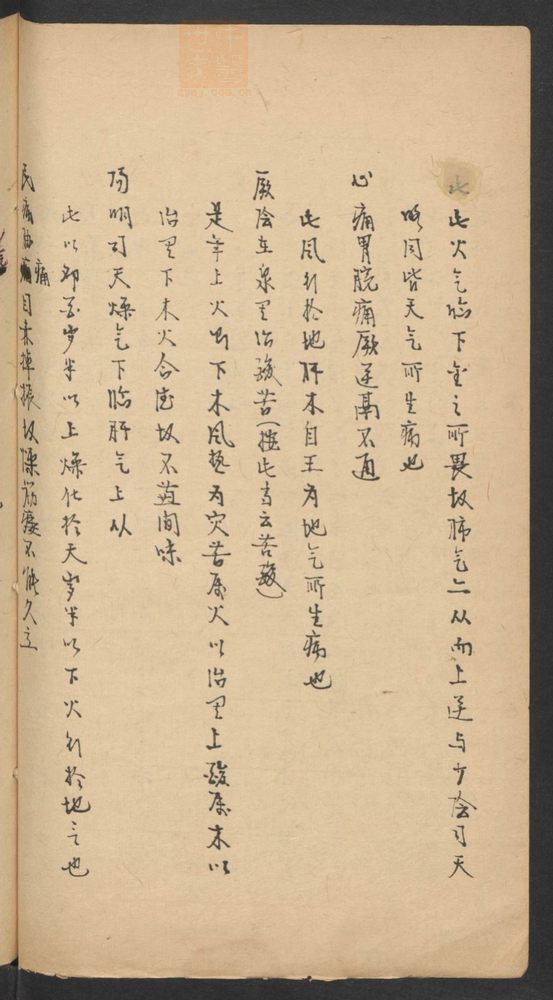 此火气临下金之所畏故肺气上从而上逆与少阴司天
略同皆天气所生病也
心痛胃脘痛厥逆鬲不通
此风行於地肝木自王为地气所生病也
厥阴在泉里治酸苦(按此当云苦酸)
是年上火而下木风热为灾苦属火以治里上酸属木以
治里下木火合德故不益间味
阳明司天燥气下临肝气上从
此以卯酉岁半以上燥化於天岁半以下火行於地言也
民病胁痛目赤掉振鼓慄筋痿不能久立
痛